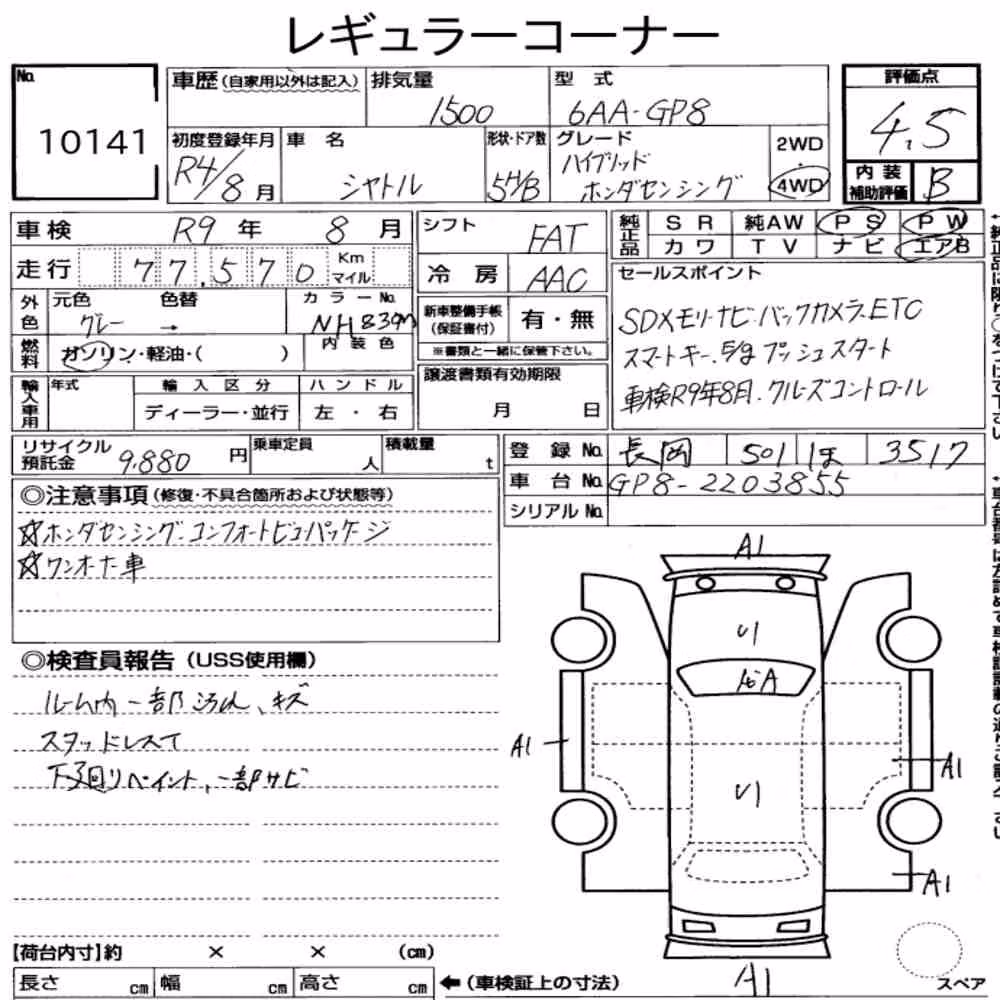 レギュラーコーナー
No. 10141
車歴 (自家用以外は記入)
排気量 1500
型式 6AA-GP8
評価点 4.5
初度登録年月 R4/8月
車名 シャトル
形状・ドア数 5H/B
グレード ハイブリッド
ホンダセンシング
2WD
4WD
内装補助評価 B
車検 R9年 8月
走行 77,570 Km マイル
シフト FAT
冷房 AAC
純正品 SR 純AW PS PW
カワ TV ナビ エアB
外色 元色 グレー → 色替
カラーNo. NH839M
燃料 ガソリン・軽油・( )
内装色
新車整備手帳(保証書付) 有・無
※書類と一緒に保管下さい。
セールスポイント
SDメモリーナビ.バックカメラ.ETC
スマートキー.5/gプッシュスタート
車検R9年8月.クルーズコントロール
輸入車用 年式
輸入区分 ディーラー・並行
ハンドル 左・右
譲渡書類有効期限
月 日
リサイクル預託金 9,880円
乗車定員 人
積載量 t
登録No. 長岡 501 ほ 3517
車台No. GP8-2203855
シリアルNo.
◎注意事項 (修復・不具合箇所および状態等)
☆ホンダセンシング.コンフォートビューパッケージ
☆ワンオーナー車
◎検査員報告 (USS使用欄)
ルーム内一部汚れ、キズ
スタッドレスT
下廻りペイント、一部サビ
A1
A1
A1
A1
A1
【荷台内寸】約 × × (cm)
長さ cm 幅 cm 高さ cm
←(車検証上の寸法)
スペア